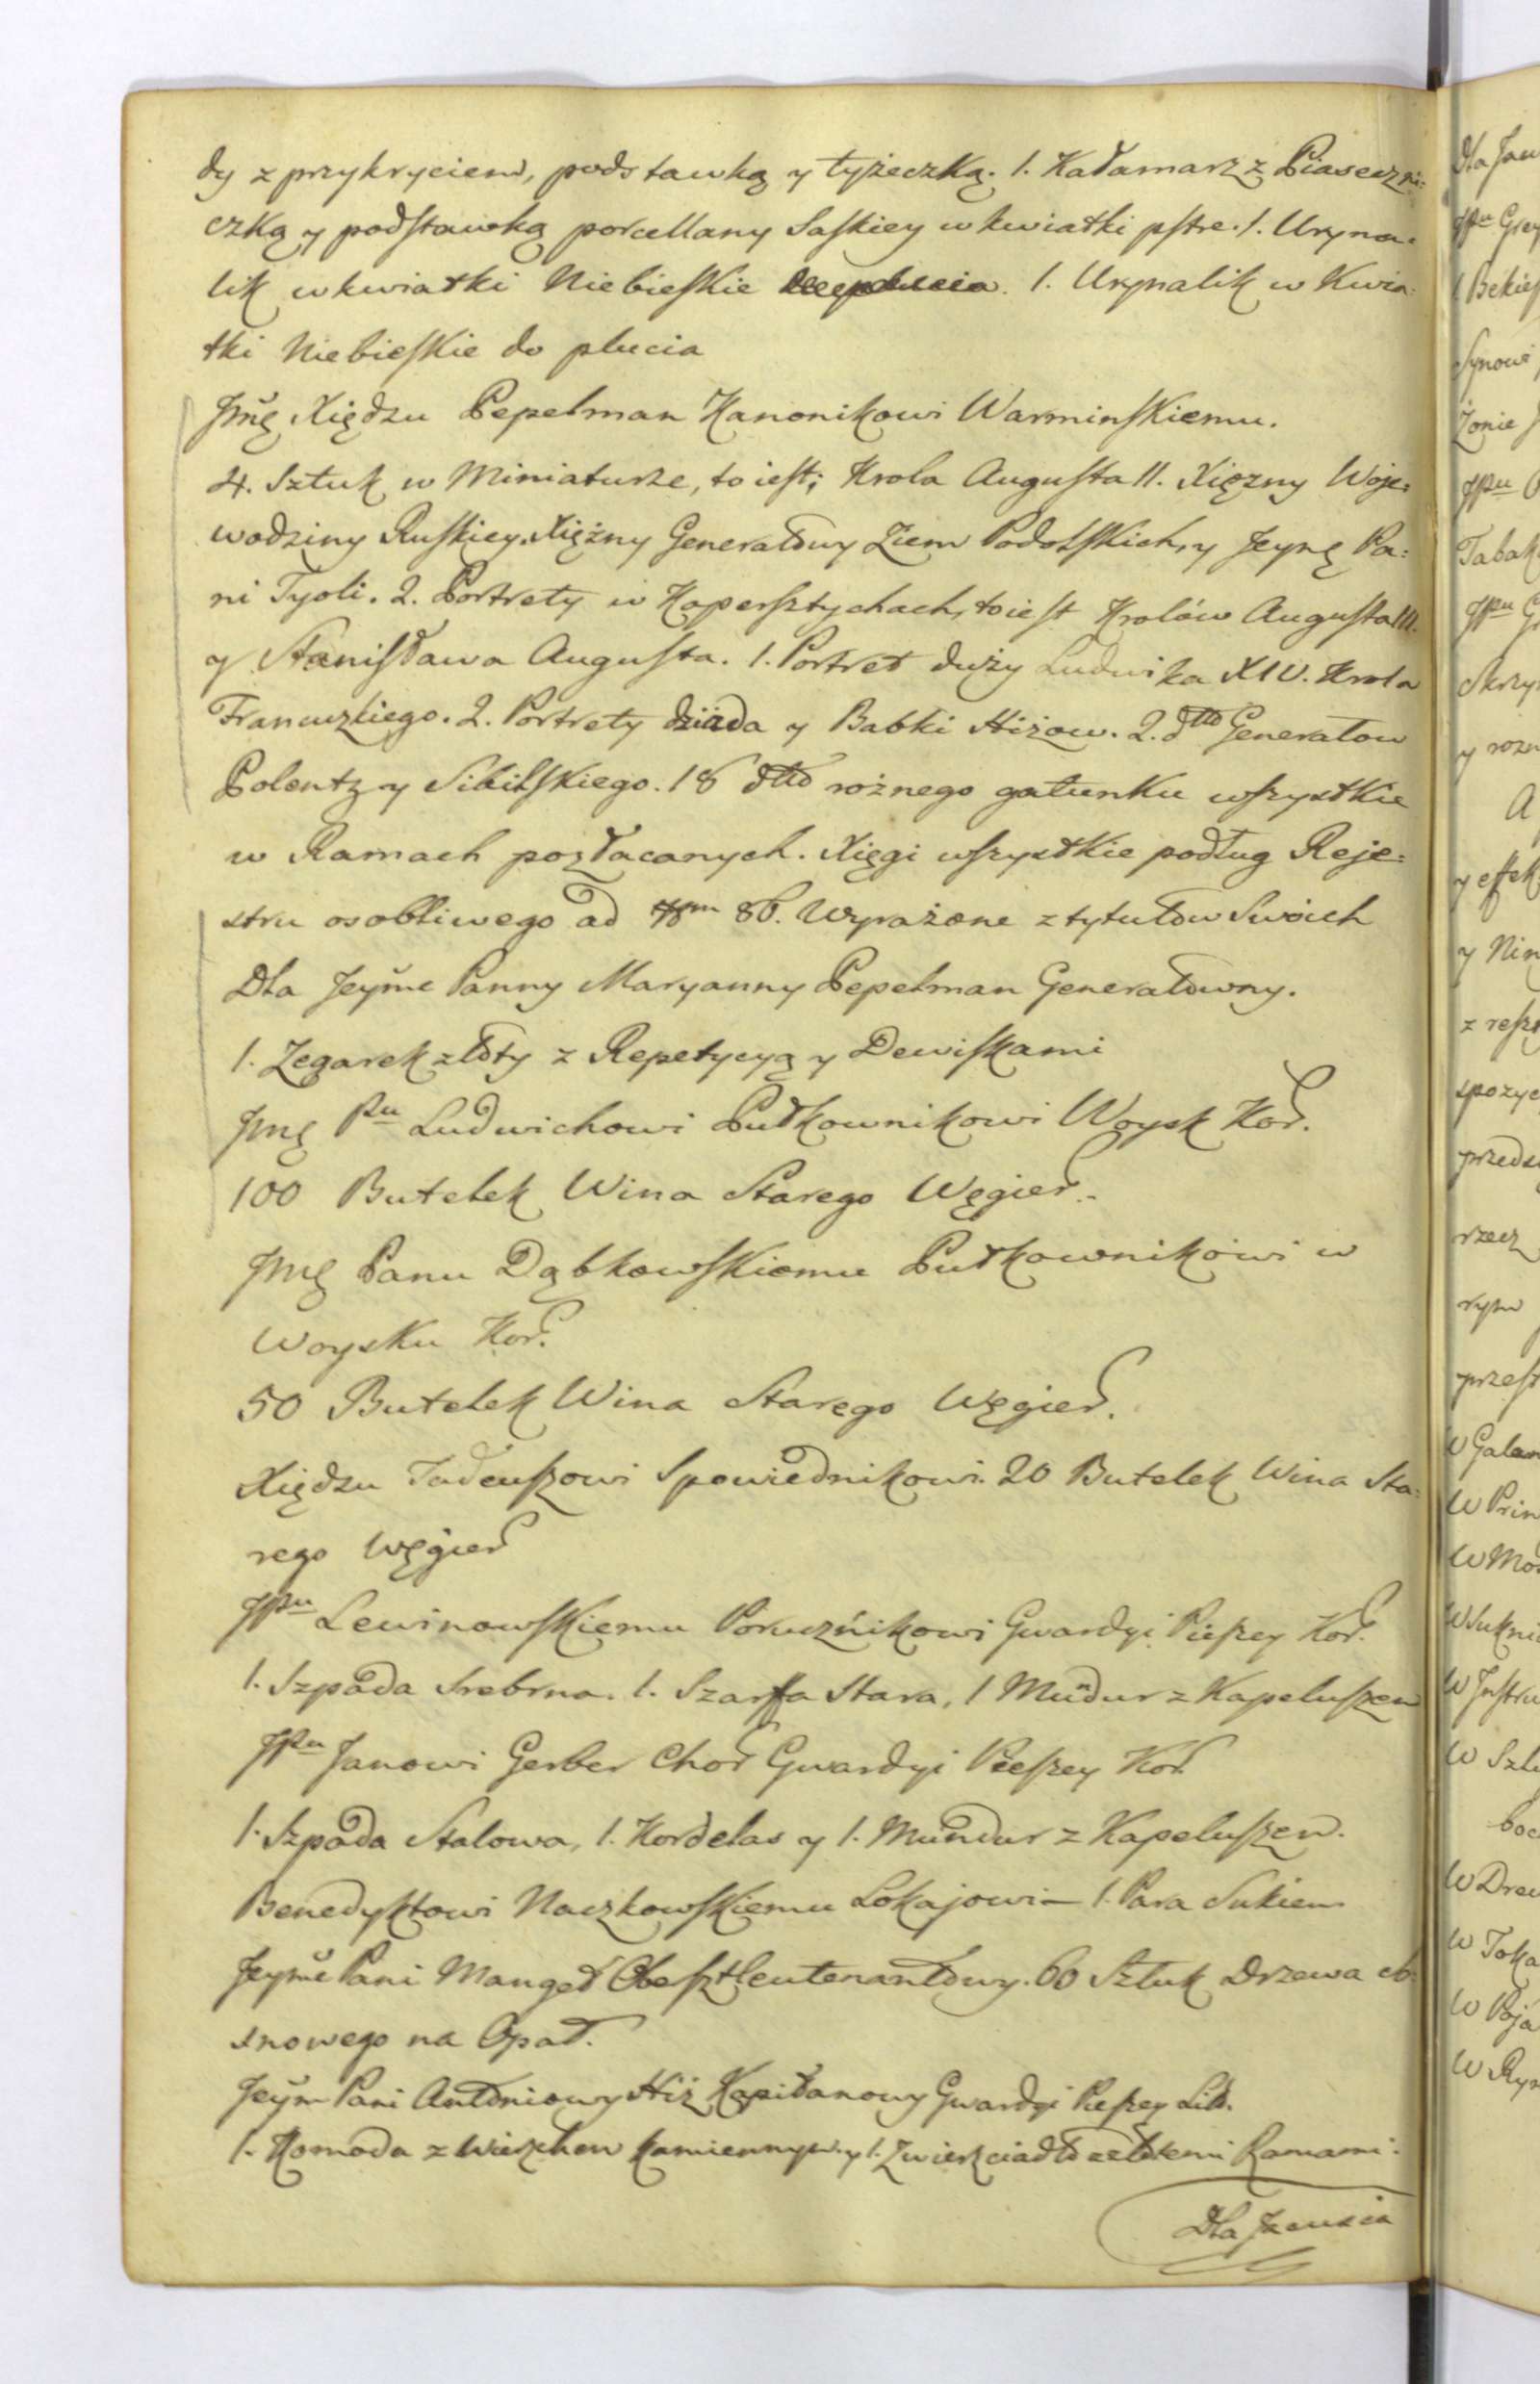 dy z przykryciem, podstawką y łyżeczką. 1. Kałamarz z Piaseczni=
czką y podstawką porcellany Saskiey w kwiatki pstre. 1. Uryna=
lik w kwiatki Niebieskie 1. Urynalik w Kwia=
tki Niebieskie do plucia
Jmę Xiędzu Pepelman Kanonikowi Warminskiemu.
4. Sztuk w Miniaturze, to iest; Krola Augusta II. Xięzny Woje=
wodziny Ruskiey, Xiężny Generałowy Ziem Podolskich, y Jeymę Pa=
ni Tyoli. 2. Portrety w Kopersztychach, to iest Krolów Augusta III.
y Stanisława Augusta. 1. Portret duży Ludwika XIV. Krola
Francuzkiego. 2. Portrety dziada y Babki Hiżow. 2. dtto Generałow
Polentz y Sibilskiego. 18 dtto rożnego gatunku wszystkie
w Ramach pozłacanych. Xięgi wszystkie podług Reje=
stru osobliwego ad 86. Wyrażone z tytułow Swoich
Dla Jeyme Panny Maryanny Pepelman Generałowny.
1. Zegarek złoty z Repetycyą y Dewiskami
Jmę Pnu Ludwichowi Pułkownikowi Woysk Kor.
100 Butelek Wina Starego Węgier.
Jmę Panu Dąbkowskiemu Pułkownikowi w
Woysku Kor.
50 Butelek Wina Starego Węgier.
Xiędzu Tadeuszowi Spowiednikowi. 20 Butelek Wina Sta=
rego Węgier
JPnu Lewinowskiemu Porucznikowi Gwardyi Pieszey Kor.
1. Szpada Srebrna. 1. Szarffa Stara, 1 Mundur z Kapeluszem
JPnu Janowi Gerber Chor Gwardyi Pieszey Kor
1. Szpada Stalowa, 1. Kordelas y 1. Mundur z Kapeluszem.
Benedyktowi Naczkowskiemu Lokajowi – 1. Para Sukien
Jeyme Pani Manget Obesztleutenantowy. 60 Sztuk Drzewa
snowego na Opał.
Jeym Pani Antoniowy Hiż Kapitanowy Gwardyi Pieszey Litt.
1. Komoda z Wierzchem kamiennym y 1. Zwierciadło Ramami.
Dla